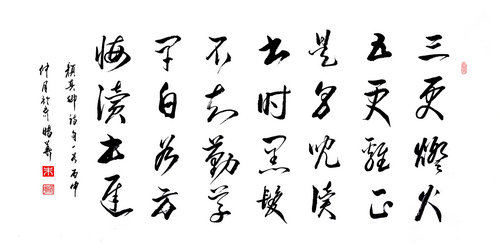 三更燈火
五更雞正
是男児讀
书时黑髮
不知勤学
早白首方
悔讀书遲
顏真卿詩句一首丙申
仲月於